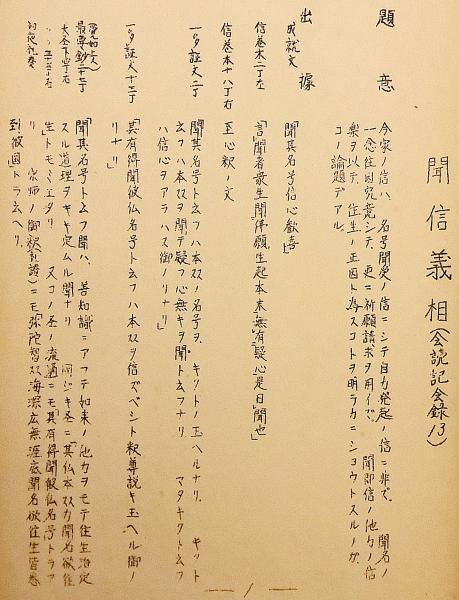 聞信義相(会読記会録13)
題意
今家ノ信ハ、名号聞受ノ信ニシテ自力発起ノ信ニ非ズ。聞名ノ
一念往因究竟シテ、更ニ祈願請求ヲ用イズ。聞即信ノ他力ノ信
楽ヲ以テ、往生ノ正因ト為スコトヲ明ラカニショウトスルノガ、
コノ論題デアル。
出據
成就文 聞其名号信心歓喜
信巻末二丁左 言聞者衆生聞佛願生起本末無有疑心是曰聞也
信巻本十八丁右 至心釈ノ文
一多証文二丁 聞其名号ト云フハ本双ノ名号ヲ、キクトノ玉ヘルナリ。キクト
云フハ本双ヲ聞テ疑フ心無キヲ聞ト云フナリ、マタキクト云フ
ハ信心ヲアラハス御ノリナリ」
一多証文十三丁 「其有得聞彼仏名号ト云フハ本双ヲ信ズベシト釈尊説キ玉ヘル御ノ
リナリ」
最要鈔
大全下
「聞其名号ト云フ聞ハ、善知識ニアフテ如来ノ他力ヲモテ往生治定
スル道理ヲキキ定ムル聞ナリ 同ジキ圣ニ「其仏本双力聞名欲往
生トモミエタリ 又コノ圣ノ流通ニモ其有得聞彼仏名号トラフ
リ 宗師ノ御釈礼讃ニモ弥陀智双海深広無涯底聞名欲往生皆悉
到彼國トラ云ヘリ。
一1一